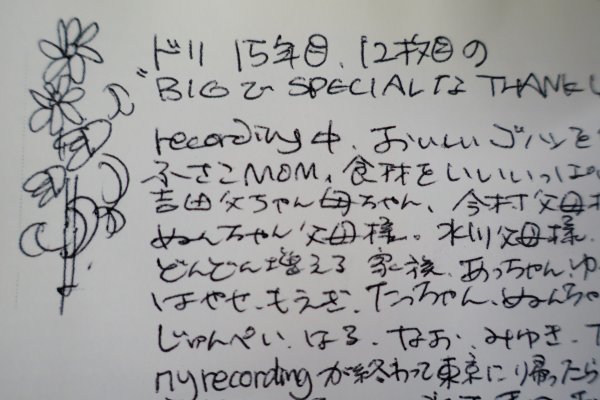 ドリ 15年目、12枚目の
"BIGで SPECIALな THANK
recording中、おいしいゴハンを
ふさこMOM、食材をいいいっぱい
吉田父ちゃん母ちゃん、今村父母
ぬんちゃん父母様。水川父母様
どんどん増える家族、あっちゃん、ゆ
はやせ、もえぎ、たっちゃん、ぬんちゃ
じゅんぺい、はる、なお、みゆき、
my recordingが終わって東京に帰ったら